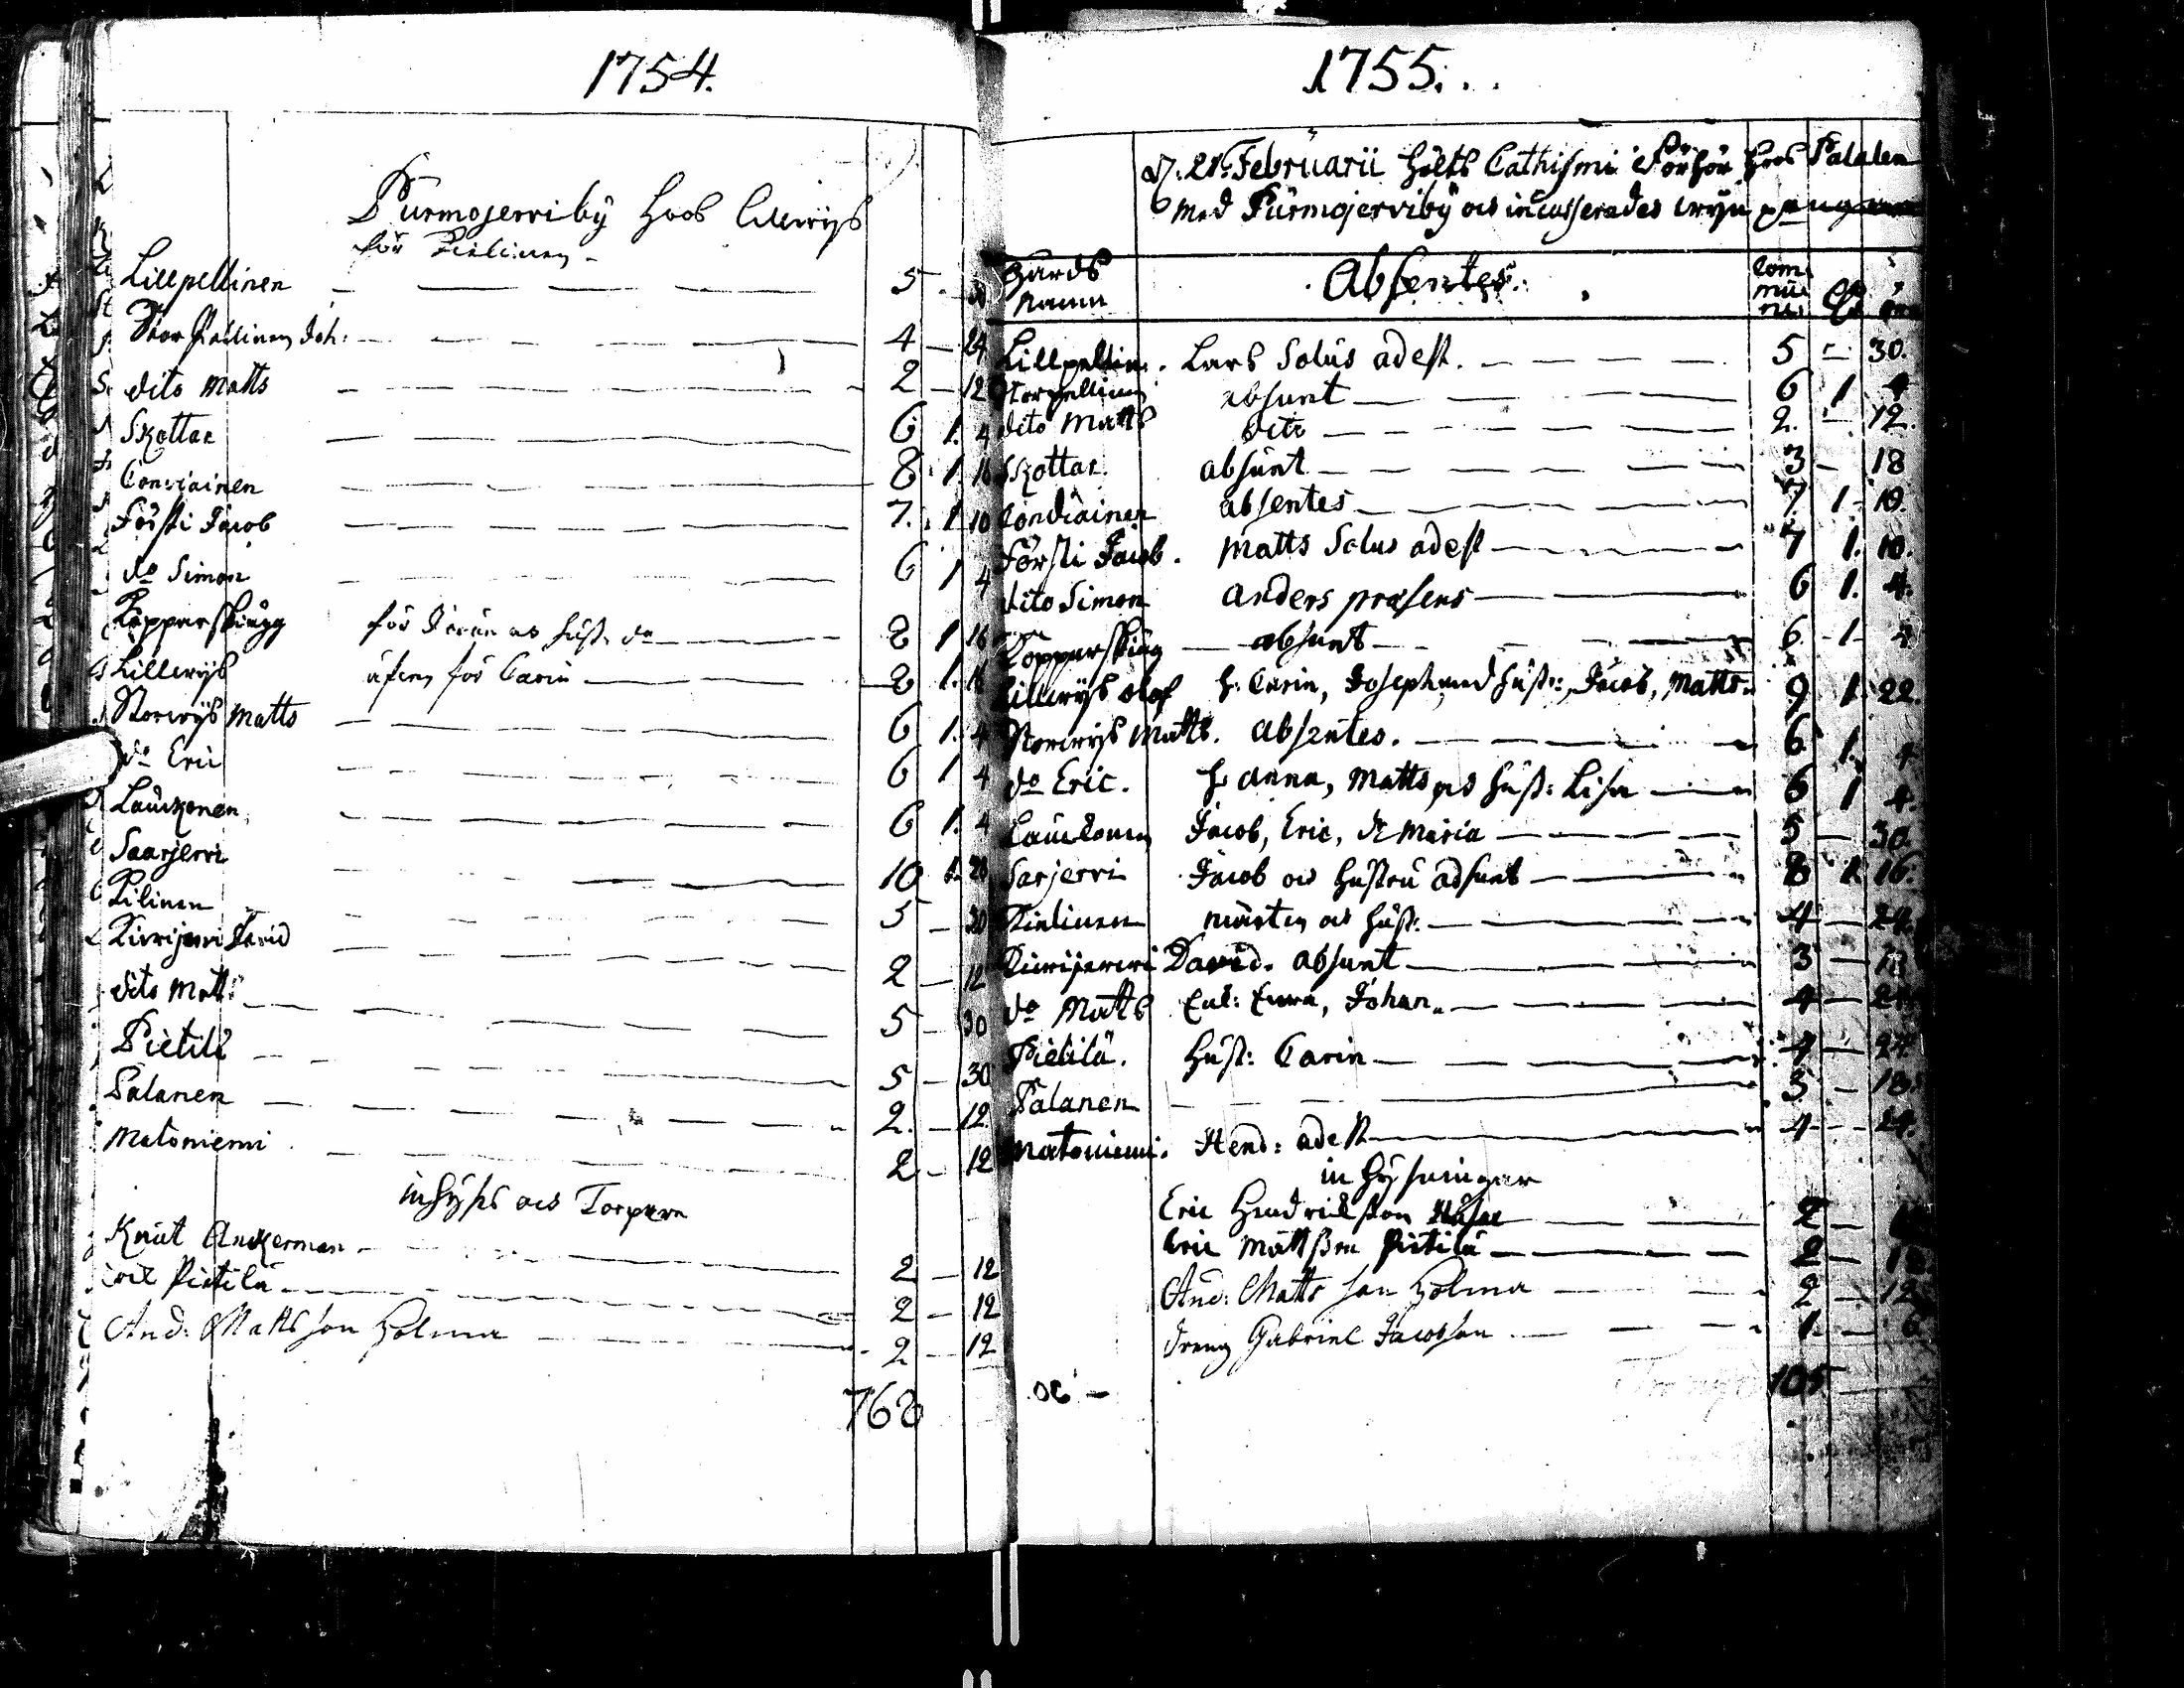 1754.
Purmojerviby hoos Lillwijs
för Pielinen
Lillpellinen 5 - 30
Storpellinen Joh: 4 - 24
dito Matts 2 - 12
Skottar 6 1. 4
Condiainen 8 1. 16
Försti Jacob 7. 1 10
do Simon 6 1 4
Kopparskiugg för och hust. do 8 1 16
Lillwijs äfven för Carin 8 1. 16
Storwijs Matts 6 1. 4
do Eric 6 1 4
Lauckonen 6 1. 4
Saarjerri 10 1. 28
Pilinen 5 - 30
Kirrijerri David 2 - 12
dito Matts 5 - 30
Pietilä 5 - 30
Palanen 2. - 12
Matoniemi 2 - 12
inhyses och Torpare
Knut Anckerman 2 - 12
Eric Pietilä 2 - 12
And: Mattsson Holma 2 - 12
768
1755.
d. 21. Februarii hölts Cathismi Förhör hoos Palalen
med Purmojerviby och incasserades
Gårds Namn Absentes. Communi
Lillpellin. Lars Solus adest. 5 - 30.
Storpellinen absunt 6 1 4
dito Matts dito 2. - 12.
Skottar absunt 3 - 18
Condiainen absentes 7 1 - 10.
Försti Jacob. Matts Solus adest 7 1. 10.
dito Simon Anders præsens 6 1. 4.
Kopparskiug absunt 6 - 1 - 4
Lillwijs Olof h. Carin, Joseph med hust:, Jacob, Matts 9 1 - 22.
Storwijs Matts. absentes. 6 1. 4
do Eric. h. Anna, Matts och hust: Lisa 6 1 4.
Lauckonen Jacob, Eric, & Maria 5 - 30
Sarjerri Jacob och hustru adsunt 8 1. 16.
Pielinen Mårten och hust: 4 - 24.
Kirrijerwi David. absunt 3 - 18
do Matts Johan 4 - 24
Pietilä. hust: Carin 4 - 24.
Palanen 3 - 18.
Matoniemi. Hend: adest 4 - 24.
inhysningar
Eric Hendrickson 2 -
Eric Mattsson Pietilä 2 - 12
And: Mattsson Holma 2 - 12
dreng Gabriel Jacobson 1. - 6
105